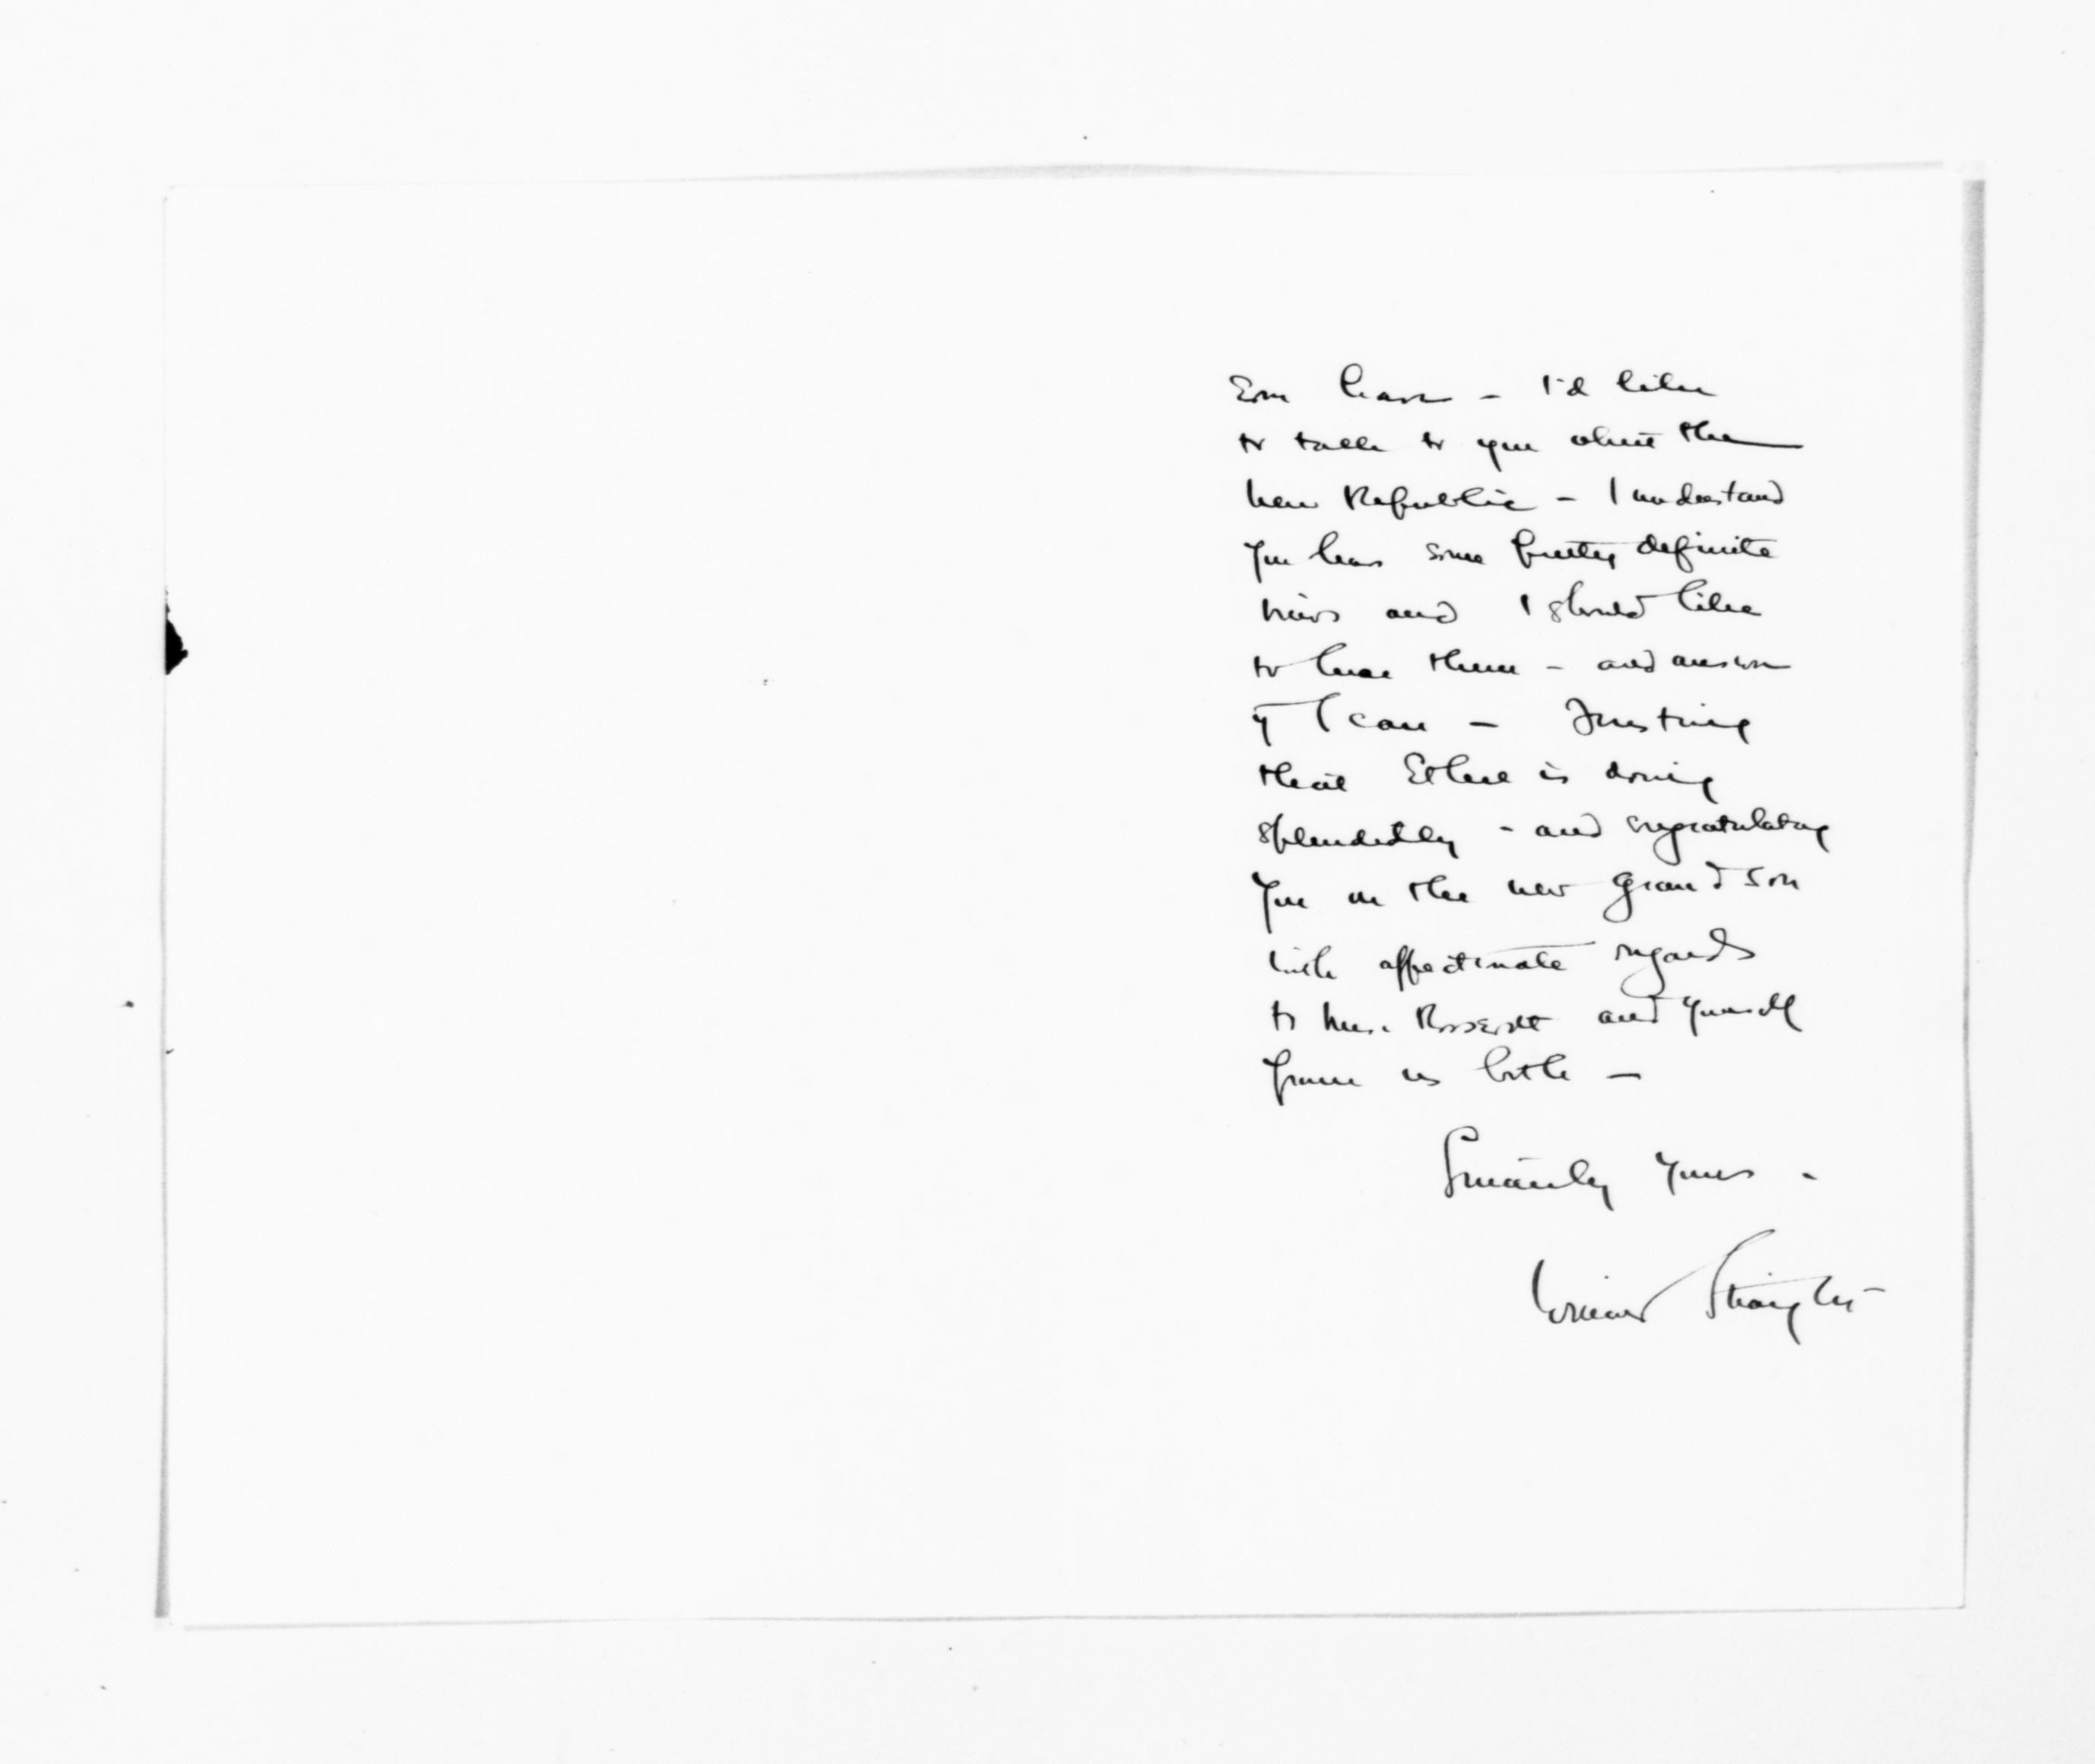 I'd like
to talk to you about the
New Republic – I understand
you have some pretty definite
views and I should like
to hear them – and answer
if I can – Trusting
that Ethel is doing
splendidly – and congratulating
you on the new grandson
with affectionate regards
to Mrs. Roosevelt and yourself
from us both –
Sincerely yours .
Willard Straight